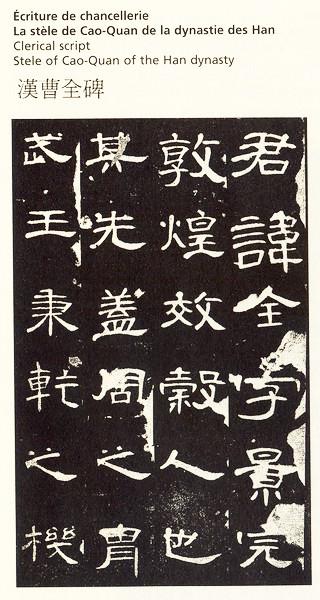 Écriture de chancellerie
La stèle de Cao-Quan de la dynastie des Han
Clerical script
Stele of Cao-Quan of the Han dynasty
漢曹全碑
君諱全字景完
敦煌效穀人也
其先蓋周之胄
武王秉乾之機